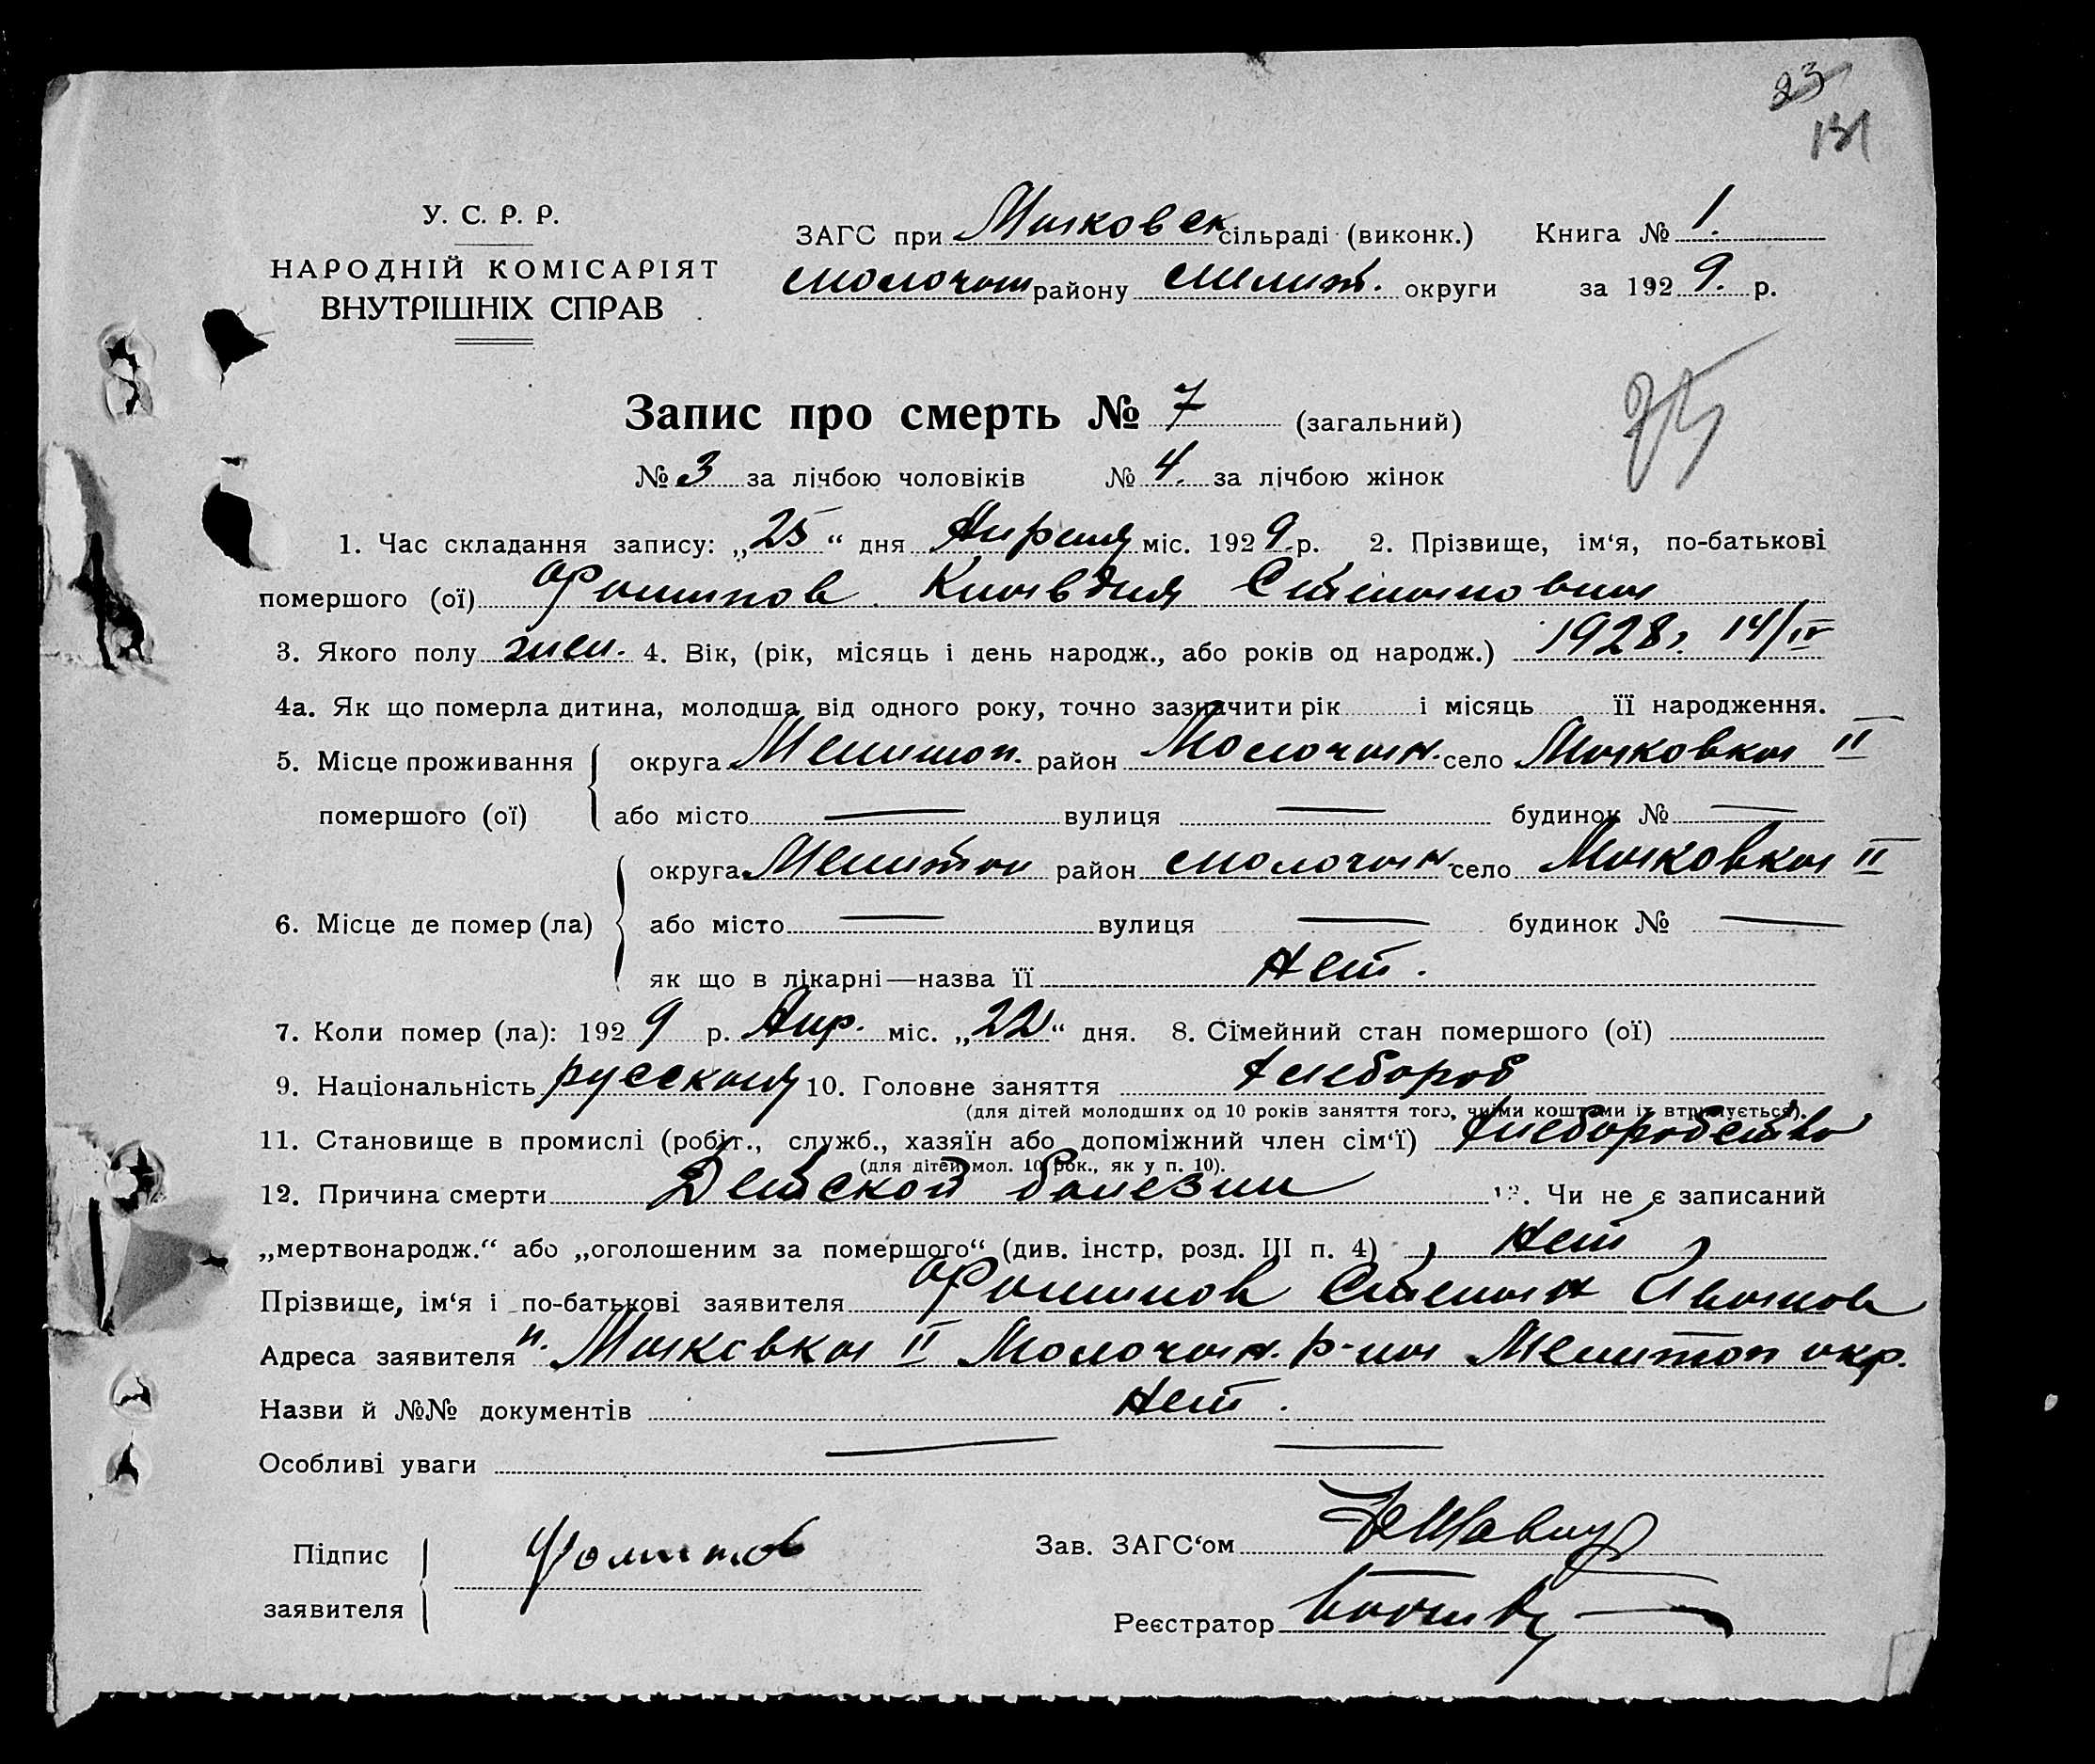 23
131
У. С. Р. Р.
НАРОДНІЙ КОМІСАРІЯТ
ВНУТРІШНІХ СПРАВ
ЗАГС при Маковск сільраді (виконк.) Книга № 1.
Молочан району Мелит. округи за 1929. р.
Запис про смерть № 7 (загальний)
№ 3 за лічбою чоловіків № 4. за лічбою жінок
1. Час складання запису: „25“ дня Апреля міс. 1929 р. 2. Прізвище, ім‘я, по-батькові
помершого (ої) Фомінов Клавдия Степановна
3. Якого полу жен. 4. Вік, (рік, місяць і день народж., або років од народж.) 1928г. 14/IV
4а. Як що померла дитина, молодша від одного року, точно зазначити рік і місяць її народження.
5. Місце проживання округа Мелитоп. район Молочан. село Маковка II
помершого (ої) або місто — вулиця — будинок № —
округа Мелитоп район Молочан село Маковка II
6. Місце де помер (ла) або місто — вулиця — будинок № —
як що в лікарні—назва її Нет.
7. Коли помер (ла): 1929 р. Апр. міс. „22“ дня. 8. Сімейний стан помершого (ої)
9. Національність русская 10. Головне заняття Хлебороб
(для дітей молодших од 10 років заняття того, чиїми коштами їх втримується).
11. Становище в промислі (робіт., служб., хазяїн або допоміжний член сім‘ї) Хлеборобство
(для дітей мол. 10 рок., як у п. 10).
12. Причина смерти Детской болезни 13. Чи не є записаний
„мертвонародж.“ або „оголошеним за помершого“ (див. інстр. розд. III п. 4) Нет
Прізвище, ім‘я і по-батькові заявителя Фоминов Степан Иванов
Адреса заявителя п. Маковка II Молочан. р-на Мелитоп окр.
Назви й №№ документів Нет.
Особливі уваги — —
Підпис Фоминов Зав. ЗАГС‘ом
заявителя Реєстратор